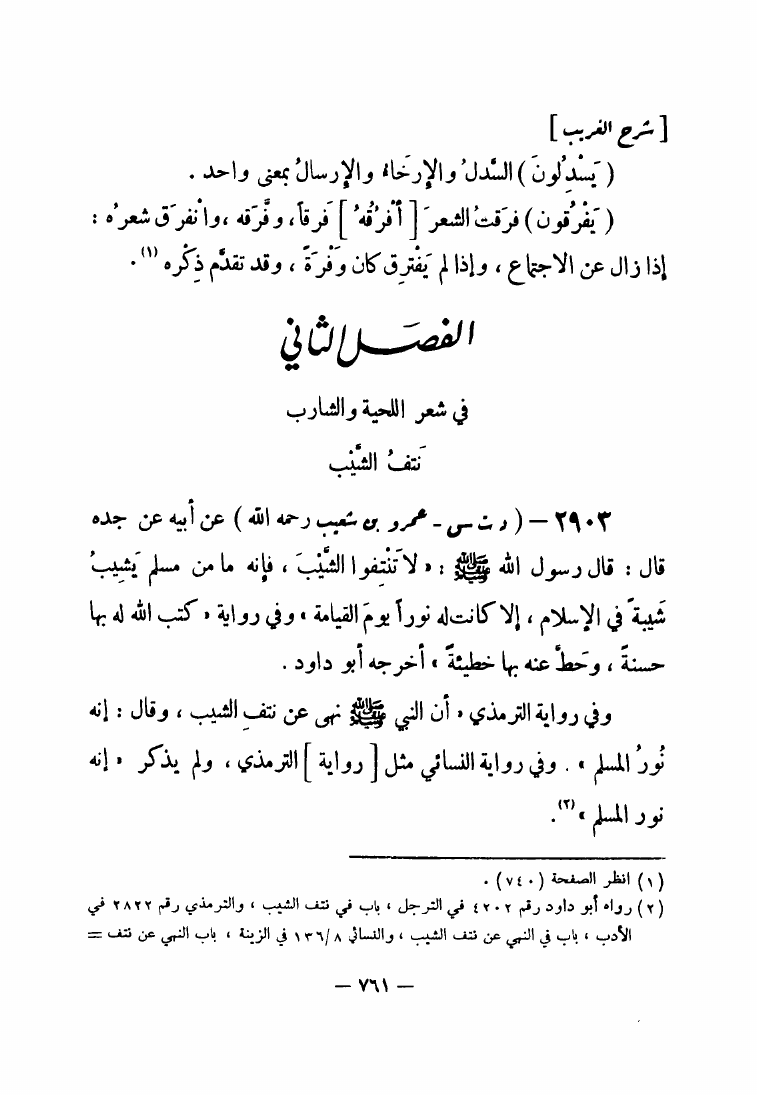 [ شرح الغريب ]
( يَسْدِلُونَ ) السَّدلُ والإِرخَاءُ والإِرسالُ بمعنى واحد .
( يَفْرُقون ) فرَقتُ الشعرَ [ أَفْرُقُهُ ] فَرقاً، وفَرَّقه ،وانْفرَق شعرُه :
إذا زال عن الاجتماع ، وإذا لم يَفْترِق كان وَفْرَةً ، وقد تقدَّم ذِكْره (١) .
الفصل الثاني
في شعر اللحية والشارب
نَتفُ الشَّيْب
٢٩٠٣ – ( د ت س - عمرو بن شعيب رحمه الله ) عن أبيه عن جده
قال : قال رسول الله ﷺ : « لا تَنْتِفوا الشَّيْبَ ، فإنه ما من مسلم يَشِيبُ
شَيبةً في الإسلام ، إلا كانت له نوراً يومَ القيامة » وفي رواية « كتب الله له بها
حسنةً ، وحَطَّ عنه بها خطيئةً » أخرجه أبو داود .
وفي رواية الترمذي « أن النبي ﷺ نهى عن نتفِ الشيب ، وقال : إنه
نُورُ المسلم » . وفي رواية النسائي مثل [ رواية ] الترمذي ، ولم يذكر « إنه
نور المسلم » (٢) .
(١) انظر الصفحة (٧٤٠) .
(٢) رواه أبو داود رقم ٤٢٠٢ في الترجل ، باب في نتف الشيب ، والترمذي رقم ٢٨٢٢ في
الأدب ، باب في النهي عن نتف الشيب ، والنسائي ١٣٦/٨ في الزينة ، باب النهي عن نتف =
– ٧٦١ –